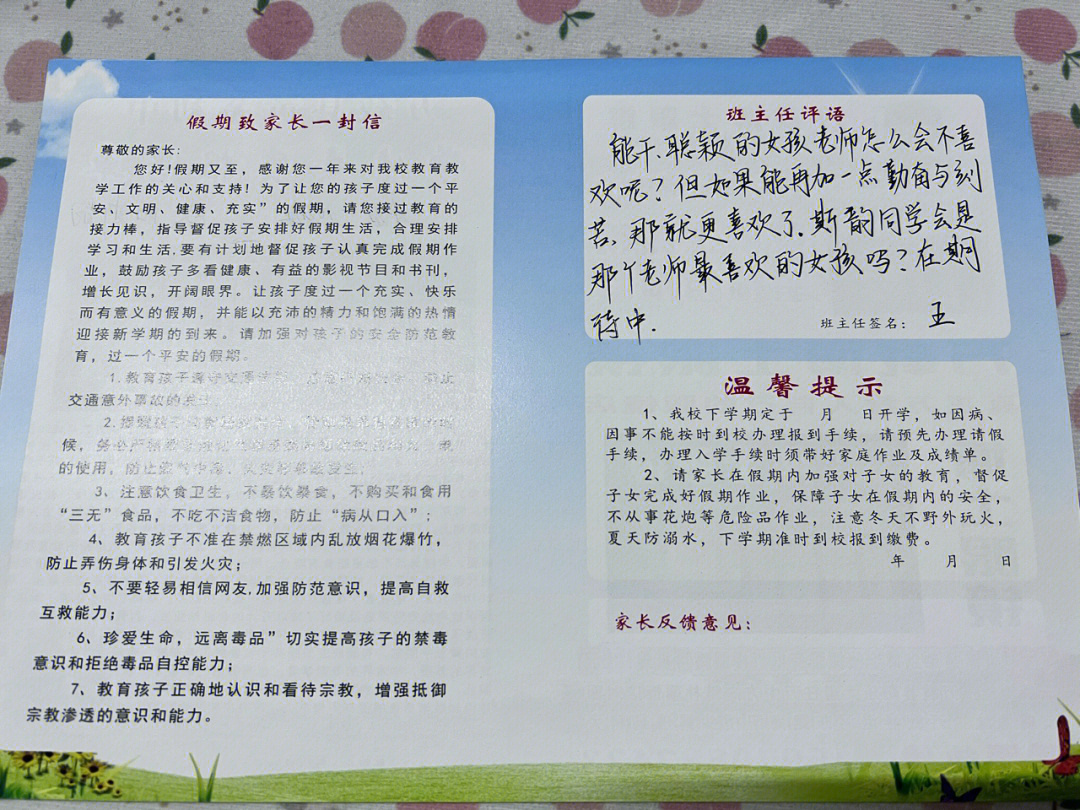 假期致家长一封信
尊敬的家长:
您好!假期又至，感谢您一年来对我校教育教
学工作的关心和支持！为了让您的孩子度过一个平
安、文明、健康、充实”的假期，请您接过教育的
接力棒，指导督促孩子安排好假期生活，合理安排
学习和生活.要有计划地督促孩子认真完成假期作
业，鼓励孩子多看健康、有益的影视节目和书刊，
增长见识，开阔眼界。让孩子度过一个充实、快乐
而有意义的假期，并能以充沛的精力和饱满的热情
迎接新学期的到来。请加强对孩子的安全防范教
育，过一个平安的假期。
1.教育孩子遵守交通
交通意外事故的发生
2.提醒孩子
候，
的使用，防止
3、注意饮食卫生，不暴饮暴食，不购买和食用
“三无”食品，不吃不洁食物，防止“病从口入”；
4、教育孩子不准在禁燃区域内乱放烟花爆竹，
防止弄伤身体和引发火灾；
5、不要轻易相信网友,加强防范意识，提高自救
互救能力；
6、珍爱生命，远离毒品”切实提高孩子的禁毒
意识和拒绝毒品自控能力；
7、教育孩子正确地认识和看待宗教，增强抵御
宗教渗透的意识和能力。
班主任评语
能干、聪颖的女孩老师怎么会不喜
欢呢？但如果能再加一点勤奋与刻
苦、那就更喜欢了.斯韵同学会是
那个老师最喜欢的女孩吗？在期
待中.
班主任签名： 王
温馨提示
1、我校下学期定于 月 日开学，如因病、
因事不能按时到校办理报到手续，请预先办理请假
手续，办理入学手续时须带好家庭作业及成绩单。
2、请家长在假期内加强对子女的教育，督促
子女完成好假期作业，保障子女在假期内的安全，
不从事花炮等危险品作业，注意冬天不野外玩火，
夏天防溺水，下学期准时到校报到缴费。
年 月 日
家长反馈意见：